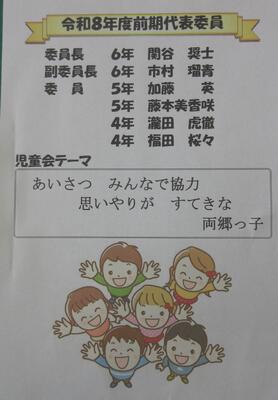 令和8年度前期代表委員
委員長 6年 関谷 奨士
副委員長 6年 市村 瑠青
委員 5年 加藤 英
5年 藤本美香咲
4年 瀧田 虎徹
4年 福田 桜々
児童会テーマ
あいさつ みんなで協力
思いやりが すてきな
両郷っ子